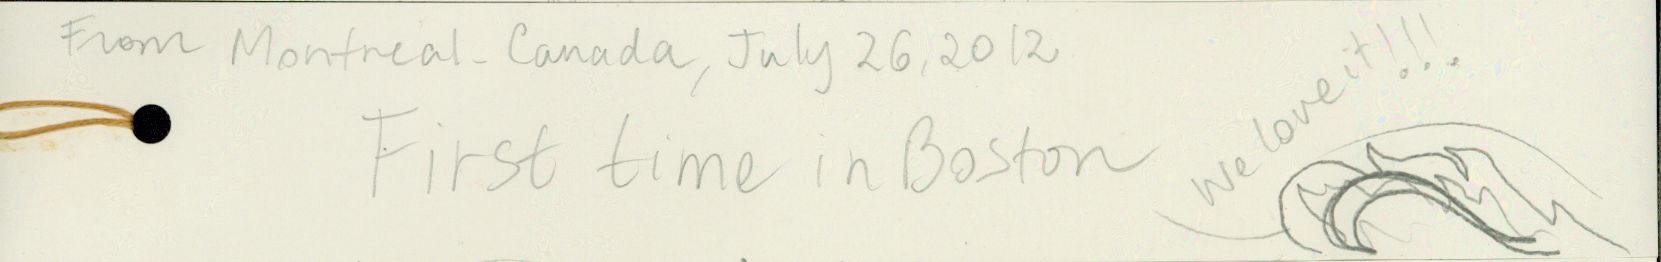 From Montreal - Canada, July 26, 2012
First time in Boston
We love it!!!